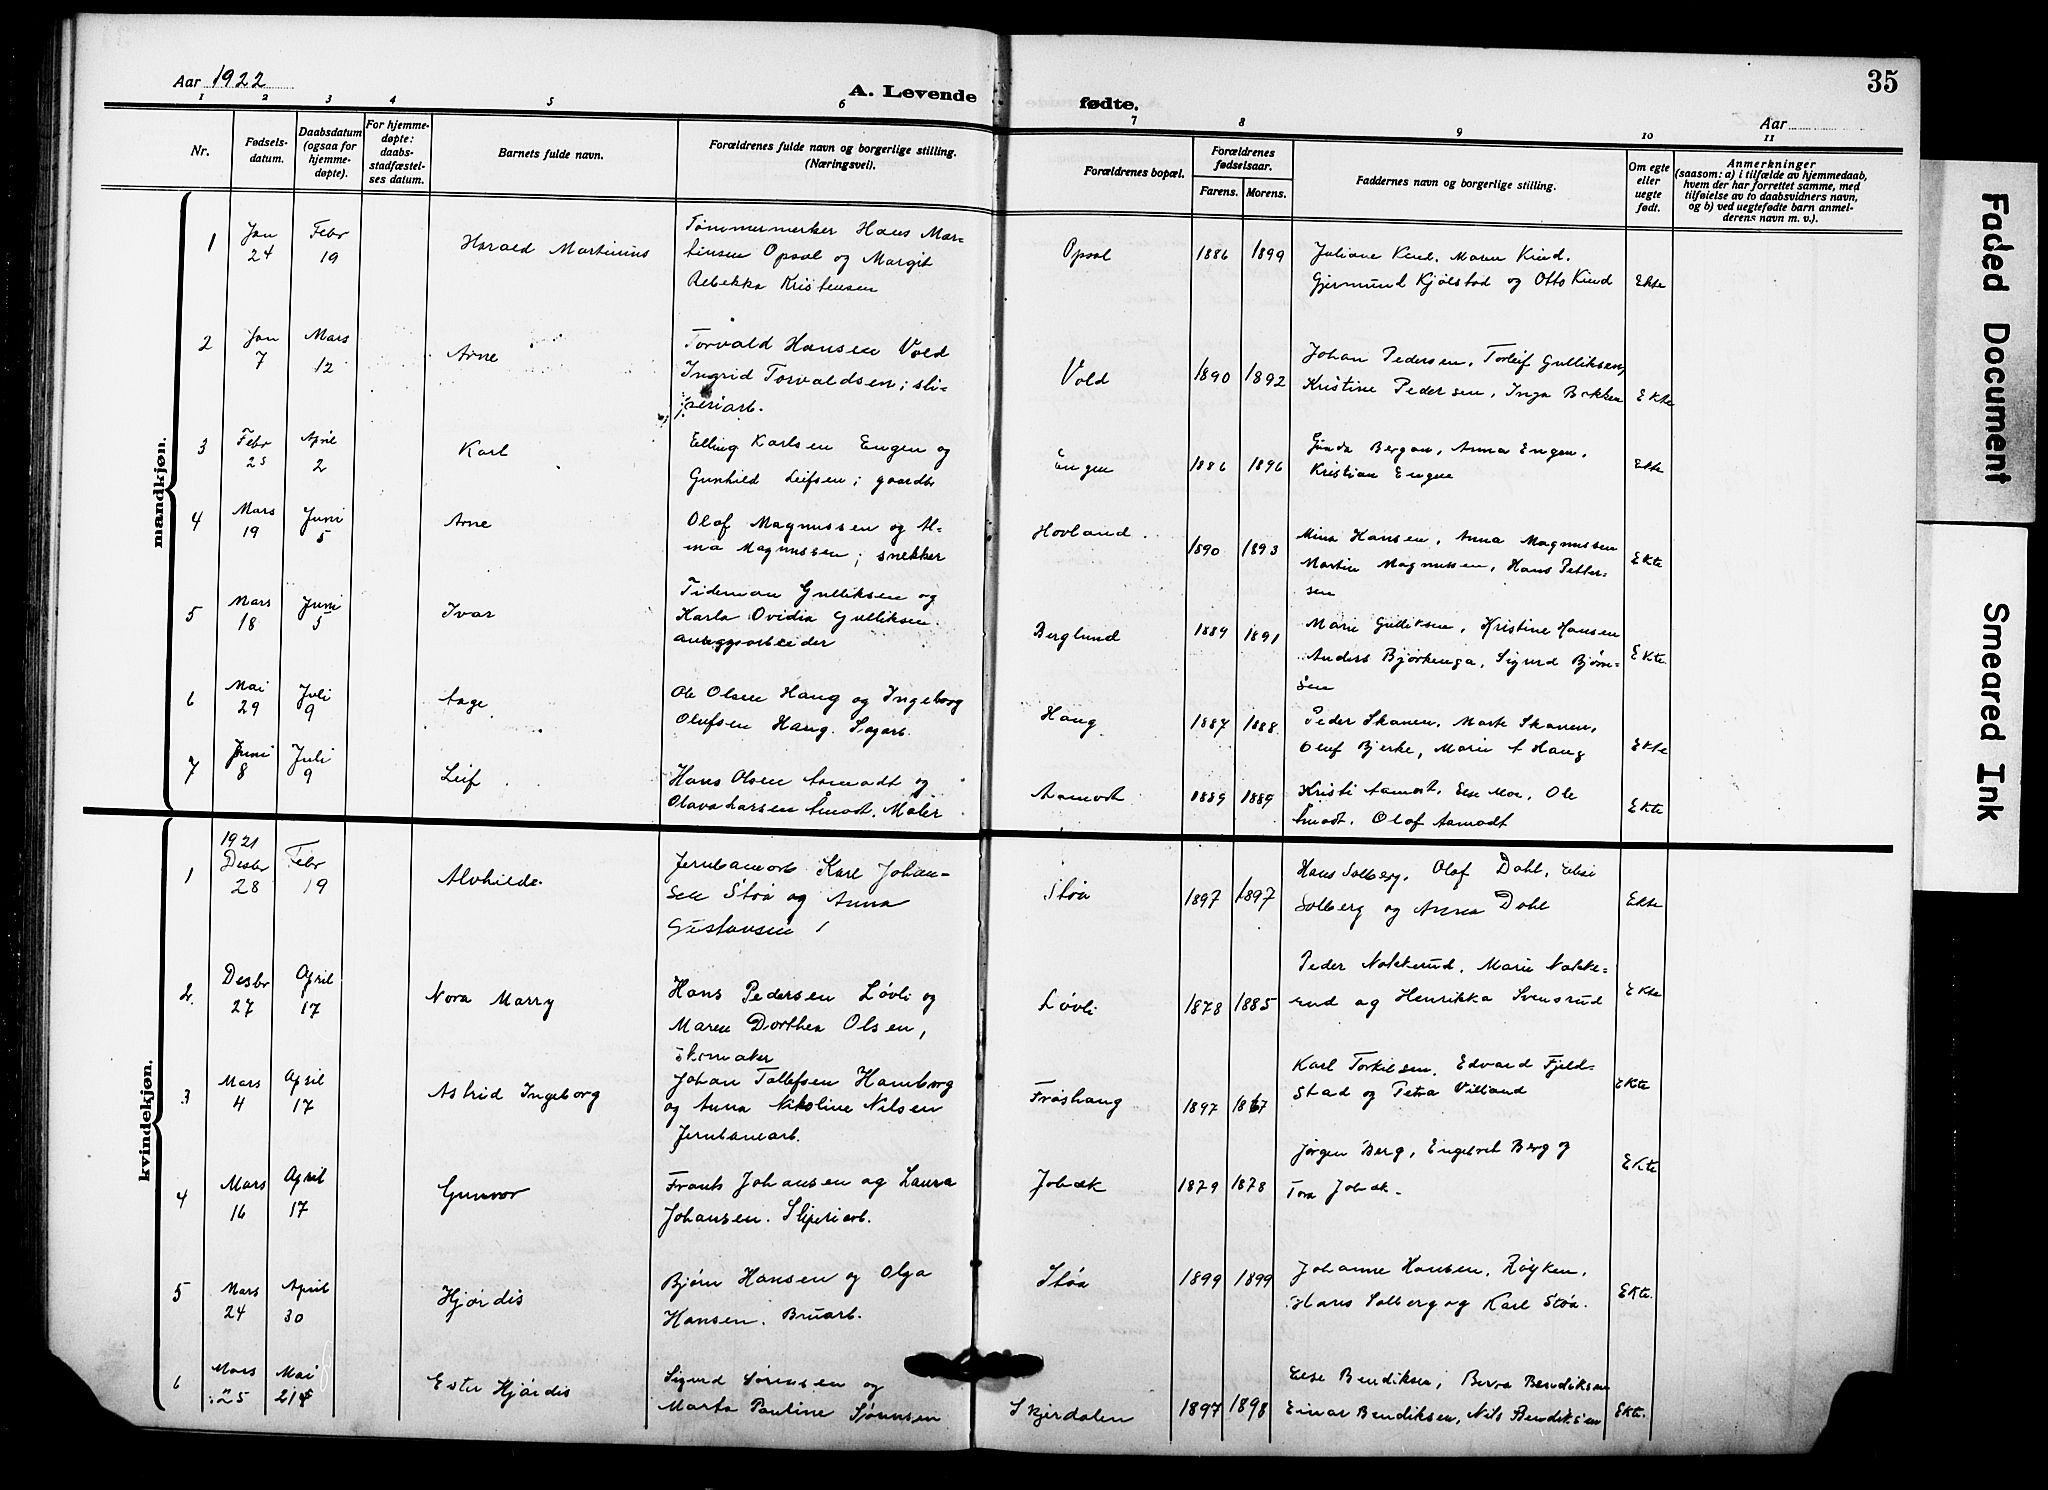 Aar 1922
A. Levende fødte.
35
Aar
1 2 3 4 5 6 7 8 9 10 11
Nr.
Fødsels-datum.
Daabsdatum (ogsaa for hjemme-døpte).
For hjemme-døpte: daabs-stadfæstel-ses datum.
Barnets fulde navn.
Forældrenes fulde navn og borgerlige stilling. (Næringsvei).
Forældrenes bopæl.
Forældrenes fødselsaar.
Farens. Morens.
Faddernes navn og borgerlige stilling.
Om egte eller uegte født.
Anmerkninger
(saasom: a) i tilfælde av hjemmedaab,
hvem der har forrettet samme, med
tilføielse av to daabsvidners navn,
og b) ved uegtefødte barn anmel-
derens navn m. v.).
mandkjøn.
1 Jan 24 Febr 19 Harald Martinius Tømmermerker Hans Mar-
tinsen Opsal og Margit
Rebekka Kristensen
Opsal 1886 1899 Juliane Kind, Maren Kind,
Gjermund Kjølstad og Otto Kind Ekte
2 Jan 7 Mars 12 Arne Torvald Hansen Vold
Ingrid Torvaldsen; sli-
periarb.
Vold 1890 1892 Johan Pedersen, Torleif Gulliksen,
Kristine Pedersen, Inga Bakken Ekte
3 Febr 25 April 2 Karl Elling Karlsen Engen og
Gunhild Leifsen; gaardbr
Engen 1886 1896 Gunda Bergan, Anna Engen,
Kristian Engen Ekte
4 Mars 19 Juni 5 Arne Olaf Magnussen og Al-
ma Magnussen; snekker
Hovland 1890 1893 Mina Hansen, Anna Magnussen
Martin Magnussen, Hans Petter-
sen Ekte
5 Mars 18 Juni 5 Ivar Tideman Gulliksen og
Karla Ovidia Gulliksen.
anleggsarbeider
Berglund 1889 1891 Marie Gulliksen, Kristine Hansen
Anders Bjørkenga, Sigurd Bjørn-
sen Ekte.
6 Mai 29 Juli 9 Aage Ole Olsen Haug og Ingeborg
Olufsen Haug. Sagarb.
Haug 1887 1888 Peder Skanen, Marte Skanen,
Oluf Bjerke, Marie A Haug Ekte
7 Juni 8 Juli 9 Leif Hans Olsen Aamodt og
Olava Larsen Åmodt. Maler
Aamodt 1889 1889 Kristi Aamodt, Else Moe, Ole
Åmodt. Olaf Aamodt Ekte
kvindekjøn.
1 1921 Desbr 28 Febr 19 Alvhilde. Jernbanearb Karl Johan-
sen Støa og Anna
Gustavsen
Støa 1897 1897 Hans Solberg, Olaf Dahl, Elise
Solberg og Anna Dahl Ekte
2. Desbr 27 April 17 Nora Marry Hans Pedersen Løvli og
Maren Dorthea Olsen,
skomaker
Løvli 1878 1885 Peder Nakkerud, Marie Nakke-
rud og Henrikka Svensrud Ekte
3 Mars 4 April 17 Astrid Ingeborg Johan Tollefsen Hamborg
og Anna Nikoline Nilsen
Jernbanearb.
Frøshaug 1897 Karl Torkilsen, Edvard Fjeld-
stad og Petra Villand Ekte
4 Mars 16 April 17 Gunvor Frants Johansen og Laura
Johansen. Sliperiarb.
Jobæk 1879 1878 Jørgen Berg, Engebret Berg og
Tora Jobæk. Ekte
5 Mars 24 April 30 Hjørdis Bjørn Hansen og Olga
Hansen. Bruarb.
Støa 1899 1899 Johanne Hansen, Røyken,
Hans Solberg og Karl Støa. Ekte.
6 Mars 25 Mai Ester Hjørdis Sigurd Sørensen og
Marta Pauline Sørensen
Skjerdalen 1897 1898 Else Bendiksen, Bendiksen
Einar Bendiksen, Nils Bendiksen Ekte.
Faded Document
Smeared Ink